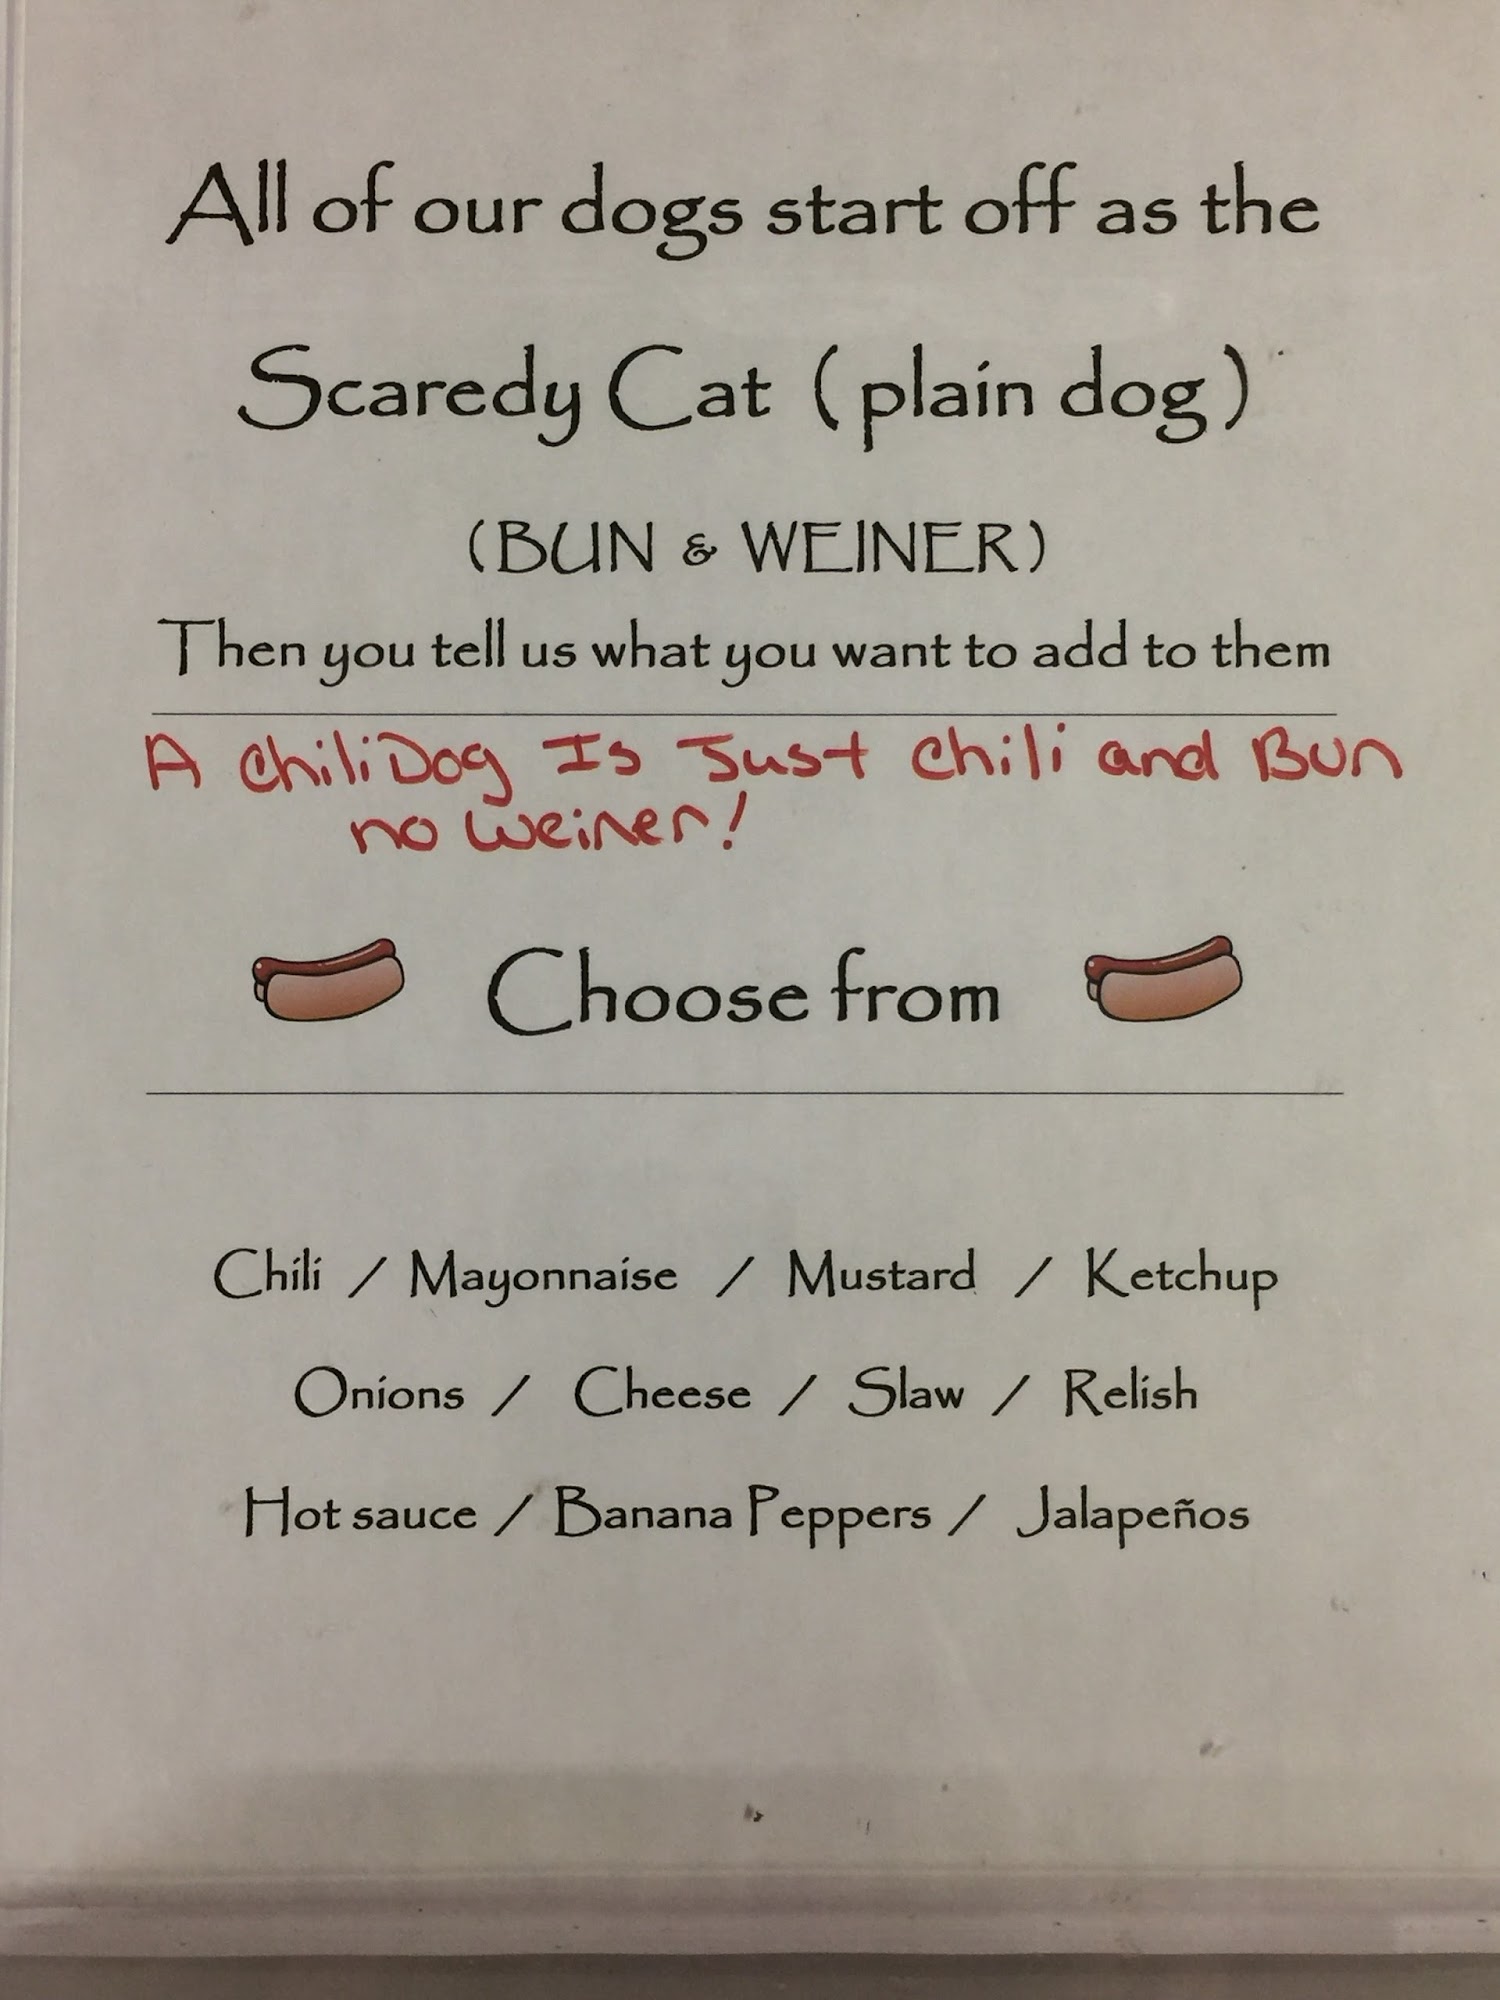 All of our dogs start off as the
Scaredy Cat (plain dog)
(BUN & WEINER)
Then you tell us what you want to add to them
A ChiliDog Is Just Chili and Bun
no weiner!
Choose from
Chili / Mayonnaise / Mustard / Ketchup
Onions / Cheese / Slaw / Relish
Hot sauce / Banana Peppers / Jalapeños